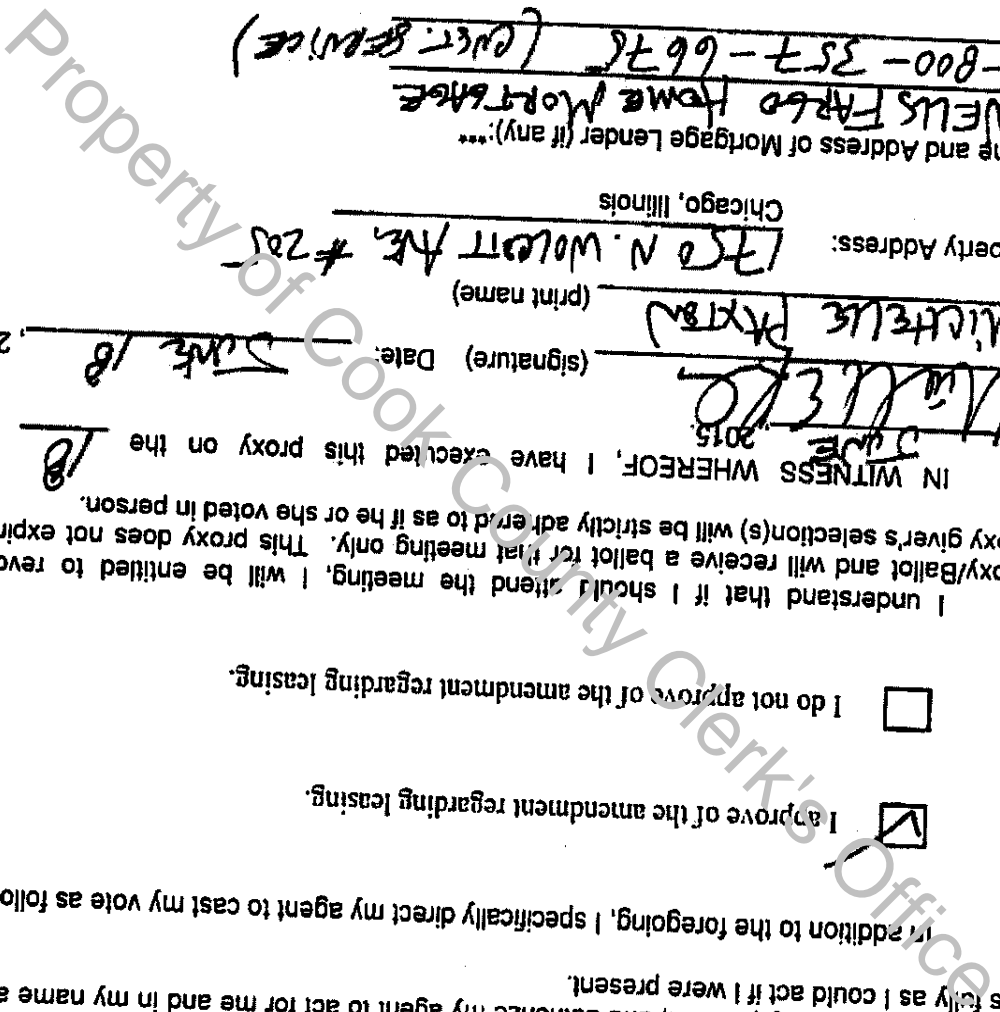 my agent to act for me and in my name a
s fully as I could act if I were present.
In addition to the foregoing, I specifically direct my agent to cast my vote as follo
I approve of the amendment regarding leasing.
I do not approve of the amendment regarding leasing.
I understand that if I should attend the meeting, I will be entitled to revo
oxy/Ballot and will receive a ballot for that meeting only. This proxy does not expir
oxy giver's selection(s) will be strictly adhered to as if he or she voted in person.
IN WITNESS WHEREOF, I have executed this proxy on the 18
JUNE, 2015.
(signature) Date: JUNE 18, 2
MICHELLE PAXTON (print name)
perty Address: 1750 N. WOLCOTT AVE, # 205
Chicago, Illinois
me and Address of Mortgage Lender (if any):***
WELLS FARGO HOME MORTGAGE
-800-357-6675 (CUST. SERVICE)
Property of Cook County Clerk's Office